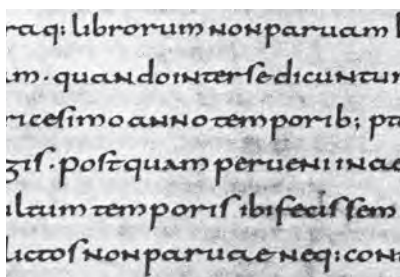 raq: librorum nonparuam l
am. quandointersedicuntur
ricesimoannotemporib; pt
gis. postquam perueniinae
ultum temporis ibifecissem
lictosnonparuae neq: con